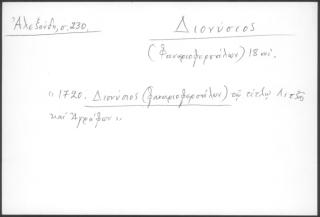 Ἀλεξούδη, σ. 230.
Διονύσιος
(Φαναριοφερσάλων) 18 αἰ.
"1720. Διονύσιος (Φαναριοφερσάλων) τῷ τίτλῳ Λιτζᾶς
καὶ Ἀγράφων".